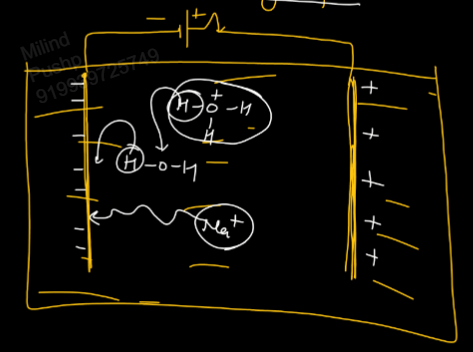 − +
Milind
Pushp
919939725749
H-O-H
+
H
H-O-H
Na+